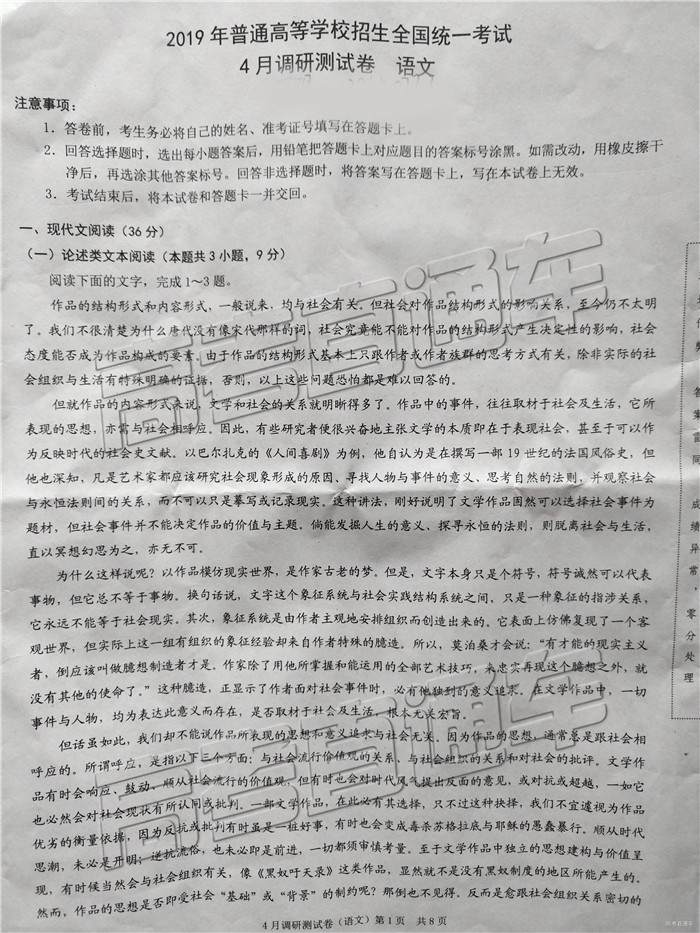 2019年普通高等学校招生全国统一考试
4月调研测试卷 语文
注意事项：
1．答卷前，考生务必将自己的姓名、准考证号填写在答题卡上。
2．回答选择题时，选出每小题答案后，用铅笔把答题卡上对应题目的答案标号涂黑。如需改动，用橡皮擦干
净后，再选涂其他答案标号。回答非选择题时，将答案写在答题卡上，写在本试卷上无效。
3．考试结束后，将本试卷和答题卡一并交回。
一、现代文阅读（36分）
（一）论述类文本阅读（本题共3小题，9分）
阅读下面的文字，完成1～3题。
作品的结构形式和内容形式，一般说来，均与社会有关。但社会对作品结构形式的影响关系，至今仍不太明
了。我们不很清楚为什么唐代没有像宋代那样的词，社会究竟能不能对作品的结构形式产生决定性的影响，社会
态度能否成为作品构成的要素。由于作品的结构形式基本上只跟作者或作者族群的思考方式有关，除非实际的社
会组织与生活有特殊明确的证据，否则，以上这些问题恐怕都是难以回答的。
但就作品的内容形式来说，文学和社会的关系就明晰得多了。作品中的事件，往往取材于社会及生活，它所
表现的思想，亦常与社会相呼应。因此，有些研究者便很兴奋地主张文学的本质即在于表现社会，甚至于可以作
为反映时代的社会史文献。以巴尔扎克的《人间喜剧》为例，他自认为是在撰写一部19世纪的法国风俗史，但
他也深知，凡是艺术家都应该研究社会现象形成的原因、寻找人物与事件的意义、思考自然的法则，并观察社会
与永恒法则间的关系，而不可以只是摹写或记录现实。这种讲法，刚好说明了文学作品固然可以选择社会事件为
题材，但社会事件并不能决定作品的价值与主题。倘能发掘人生的意义、探寻永恒的法则，则脱离社会与生活，
直以冥想幻思为之，亦无不可。
为什么这样说呢？以作品模仿现实世界，是作家古老的梦。但是，文字本身只是个符号，符号诚然可以代表
事物，但它总不等于事物。换句话说，文字这个象征系统与社会实践结构系统之间，只是一种象征的指涉关系，
它永远不能等于社会现实。其次，象征系统是由作者主观地安排组织而创造出来的。它表面上仿佛复现了一个客
观世界，但实际上这一组有组织的象征经验却来自作者特殊的臆造。所以，莫泊桑才会说：“有才能的现实主义
者，倒应该叫做臆想制造者才是。作家除了用他所掌握和能运用的全部艺术技巧，来忠实再现这个臆想之外，就
没有其他的使命了。”这种臆造，正显示了作者面对社会事件时，必有他独到的意义追求。在文学作品中，一切
事件与人物，均为表达此意义而存在，是否取材于社会及生活，根本无关宏旨。
但话虽如此，我们却不能说作品所表现的思想和意义追求与社会无关。因为作品的思想，通常总是跟社会相
呼应的。所谓呼应，是指以下三个方面：与社会流行价值观的关系、与社会组织的关系和对社会的批评。文学作
品有时会响应、鼓动、顺从社会流行的价值观，但有时也会对时代风气提出反面的意见，或对抗或超越，一如它
也必然会对社会现状有所认同或批判。一部文学作品，在此必有其选择，只不过这种抉择，我们不宜遽视为作品
优劣的衡量依据，因为反抗或批判有时虽是一桩好事，有时也会变成毒杀苏格拉底与耶稣的愚蠢暴行。顺从时代
思潮，未必是开明；逆抗流俗，也未必即是前进，一切都须审慎考量。至于文学作品中独立的思想建构与价值呈
现，有时候当然会与社会组织有关，像《黑奴吁天录》这类作品，显然就不是没有黑奴制度的地区所能产生的。
然而，作品的思想是否即受社会“基础”或“背景”的制约呢？那倒也不见得。反而是愈跟社会组织关系密切的
4月调研测试卷（语文）第1页 共8页
答案雷同
成绩异常，零分处理
高考直通车
高考直通车